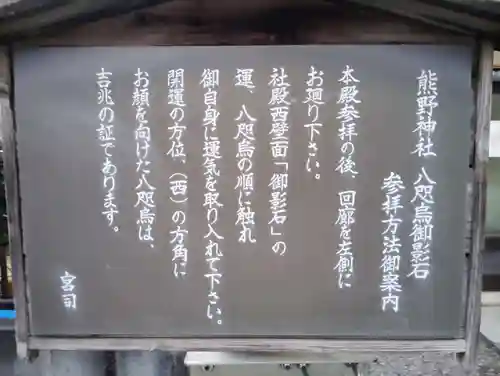 熊野神社 八咫烏御影石
参拝方法御案内
本殿参拝の後、回廊を左側に
お廻り下さい。
社殿西壁面「御影石」の
運、八咫烏の順に触れ
御自身に運気を取り入れて下さい。
開運の方位、(西)の方角に
お顔を向けた八咫烏は、
吉兆の証であります。
宮司